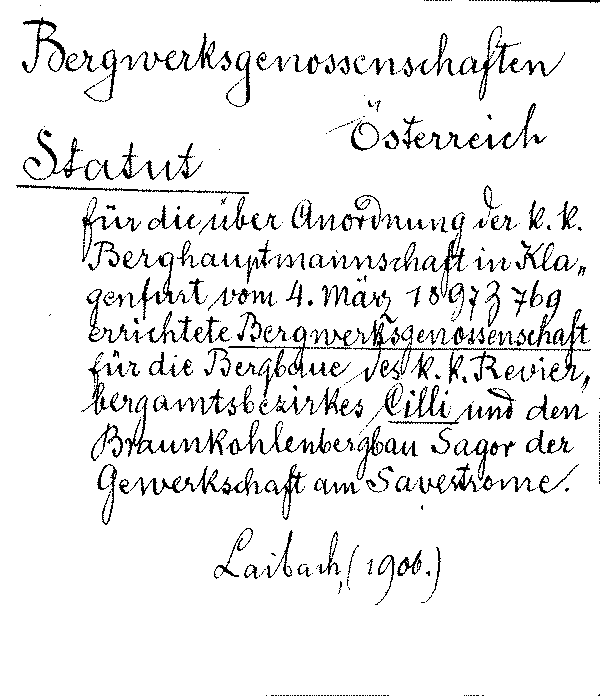 Bergwerksgenossenschaften
Österreich
Statut
für die über Anordnung der k. k.
Berghauptmannschaft in Kla„
genfurt vom 4. März 1897 Z 769
errichtete Bergwerksgenossenschaft
für die Bergbaue des k. k. Revier„
bergamtsbezirkes Cilli und den
Braunkohlenbergbau Sagor der
Gewerkschaft am Savestrome.
Laibach, (1906.)